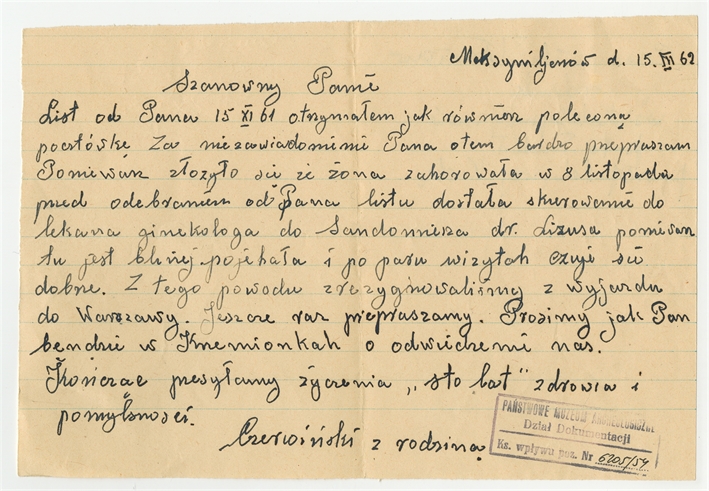 Maksymiljanów d. 15. III 62
Szanowny Panie
List od Pana 15 XI 61 otrzymałem jak również poleconą
pocztówkę Za niezawiadomieni Pana otem bardzo przepraszam
Ponieważ złożyło sie że żona zahorowała w 8 listopada
przed odebraniem od Pana listu dostała skierowanie do
lekarza ginekologa do Sandomierza dr. Lizusa poniewarz
tu jest bliżej pojehała i po paru wizytah czuje sie
dobrze. Z tego powodu zrezygnowaliśmy z wyjazdu
do Warszawy. Jeszcze raz przepraszamy. Prosimy jak Pan
bendzie w Krzemionkah o odwiedzenie nas.
Kończąc przesyłamy życzenia „sto lat" zdrowia i
pomyślności.
Czerwiński z rodziną
PAŃSTWOWE MUZEUM ARCHEOLOGICZNE
Dział Dokumentacji
Ks. wpływu poz. Nr 6205/54